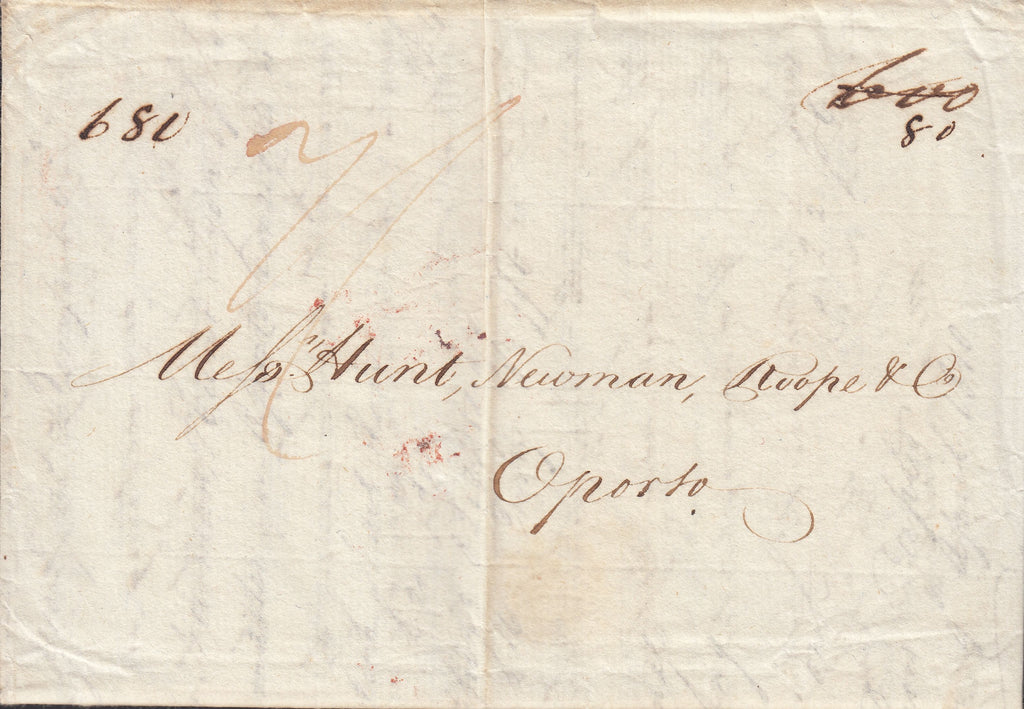 680
600
80
Messrs Hunt, Newman, Roope & Co
Oporto.